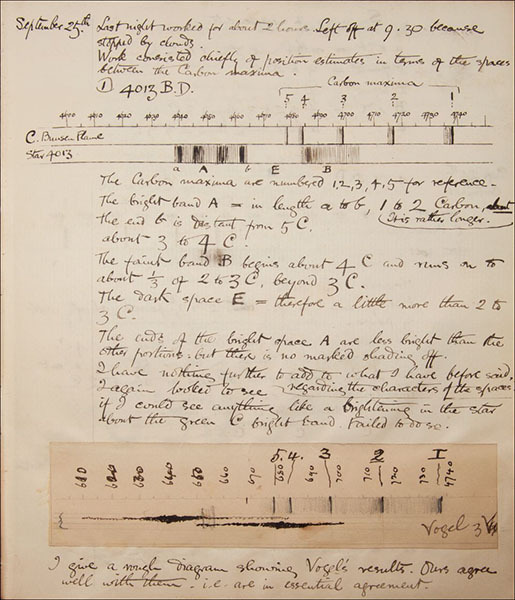 September 25th. Last night worked for about 2 hours. Left off at 9.30 because
stopped by clouds.
Work consisted chiefly of position estimates in terms of the spaces
between the Carbon maxima.
① 4013 B.D.
Carbon maxima
5 4 3 2 1
C. Bunsen Flame
Star 4013
a A b E B
The Carbon maxima are numbered 1,2,3,4,5 for reference.
The bright band A = in length a to b, 1 to 2 Carbon, about
the end b is distant from 5 C. (This rather longer.)
about 3 to 4 C.
The faint band B begins about 4 C and runs on to
about 1/3 of 2 to 3 C, beyond 3 C.
The dark space E = therefore a little more than 2 to
3 C.
The ends of the bright space A are less bright than the
other portions. but there is no marked shading off.
I have nothing further to add to what I have before said,
regarding the characters of the spaces.
I again looked to see
if I could see anything like a brightening in the star
about the green C bright band. Failed to do so.
5. 4. 3 2 I
660 670 680 690 700 710 720 730 4740
Vogel 3
I give a rough diagram showing Vogel's results. Ours agree
well with them. i.e. are in essential agreement.